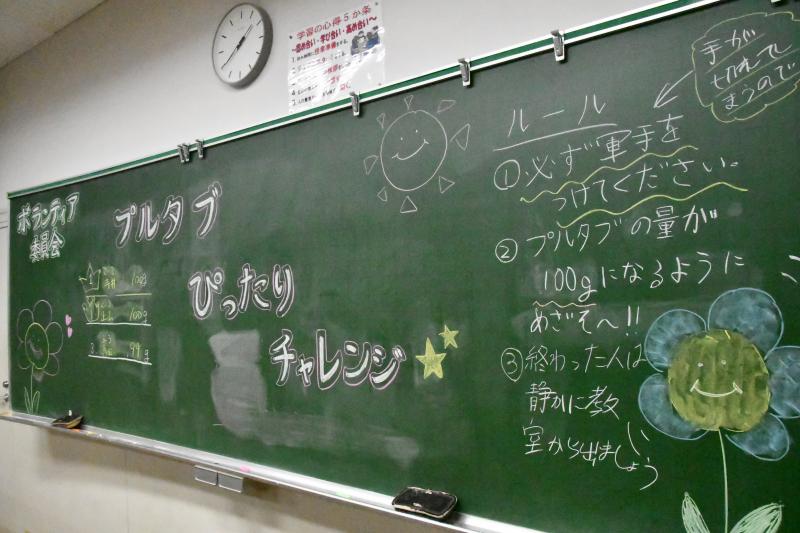 学習の心得5か条
ボランティア
委員会
プルタブ
ぴったり
チャレンジ
100g
99g
ルール
手が
切れてし
まうので
①必ず軍手を
つけてください。
②プルタブの量が
100gになるように
めざそ〜!!
③終わった人は
静かに教
室から出ましょう